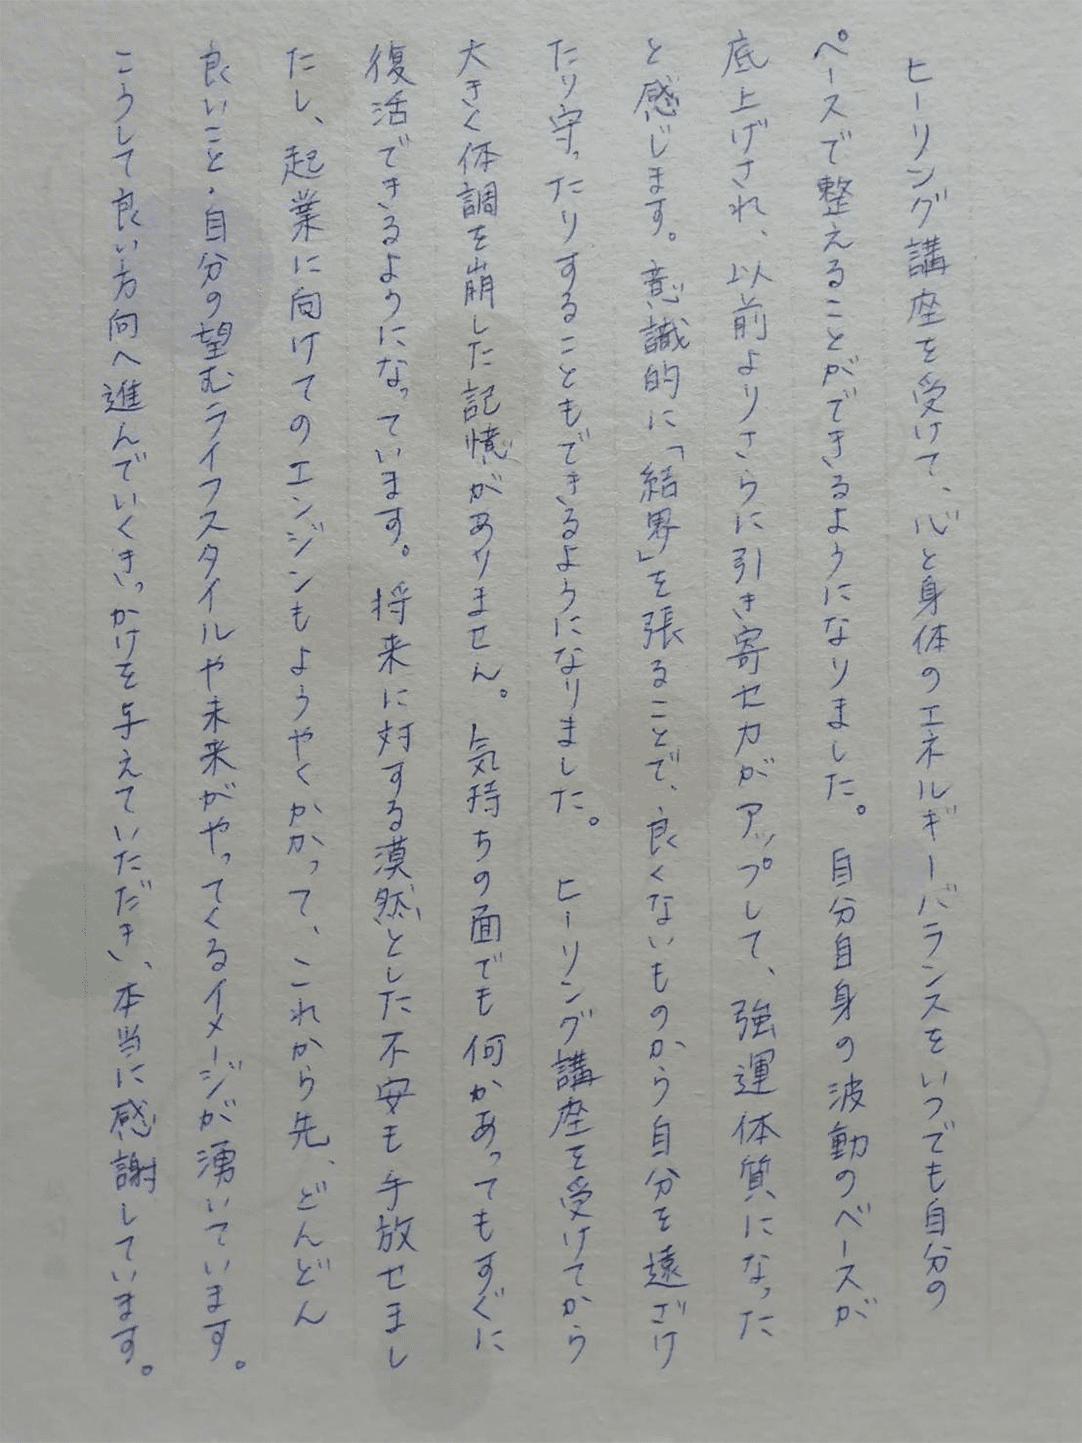 ヒーリング講座を受けて、心と身体のエネルギーバランスをいつでも自分の
ペースで整えることができるようになりました。自分自身の波動のベースが
底上げされ、以前よりさらに引き寄せ力がアップして、強運体質になった
と感じます。意識的に「結界」を張ることで、良くないものから自分を遠ざけ
たり守ったりすることもできるようになりました。 ヒーリング講座を受けてから
大きく体調を崩した記憶がありません。気持ちの面でも何かあってもすぐに
復活できるようになっています。将来に対する漠然とした不安も手放せまし
たし、起業に向けてのエンジンもようやくかかって、これから先、どんどん
良いこと・自分の望むライフスタイルや未来がやってくるイメージが湧いています。
こうして良い方向へ進んでいくきっかけを与えていただき、本当に感謝しています。